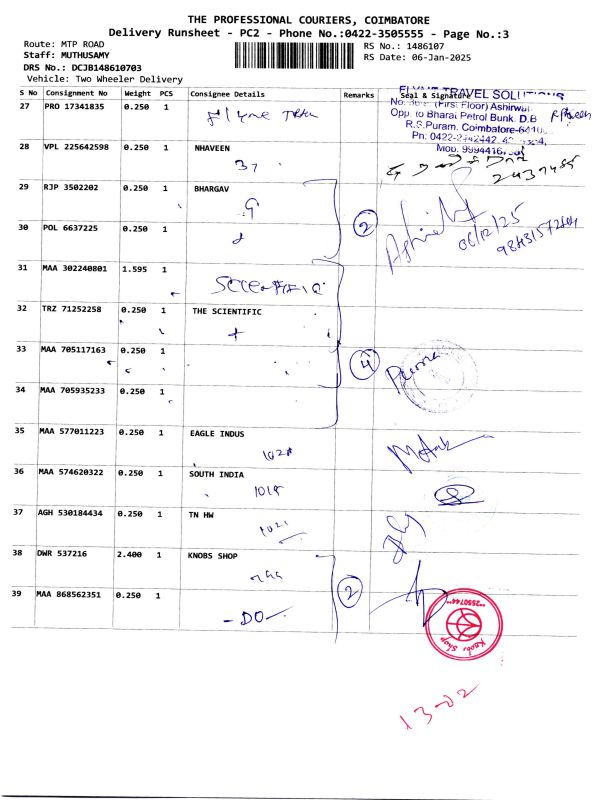 THE PROFESSIONAL COURIERS, COIMBATORE
Delivery Runsheet - PC2 - Phone No.:0422-3505555 - Page No.:3
Route: MTP ROAD
RS No.: 1486107
Staff: MUTHUSAMY
RS Date: 06-Jan-2025
DRS No.: DCJB148610703
Vehicle: Two Wheeler Delivery
S No Consignment No Weight PCS Consignee Details Remarks Seal & Signature
TRAVEL SOLUTIONS
(First Floor) Ashirwa
27 PRO 17341835 0.250 1
Opp. to Bharat Petrol Bunk. D.B
R.S.Puram. Coimbatore-6410
Ph. 0422-2442442
Mob. 9994416
28 VPL 225642598 0.250 1 NHAVEEN
37
29 RJP 3502202 0.250 1 BHARGAV
2
06/12/25
30 POL 6637225 0.250 1
31 MAA 302240801 1.595 1
32 TRZ 71252258 0.250 1 THE SCIENTIFIC
33 MAA 705117163 0.250 1
4
34 MAA 705935233 0.250 1
35 MAA 577011223 0.250 1 EAGLE INDUS
36 MAA 574620322 0.250 1 SOUTH INDIA
37 AGH 530184434 0.250 1 TN HW
1021
38 DWR 537216 2.400 1 KNOBS SHOP
2
39 MAA 868562351 0.250 1
- DO -
Knobs Shop
2550744
13-02